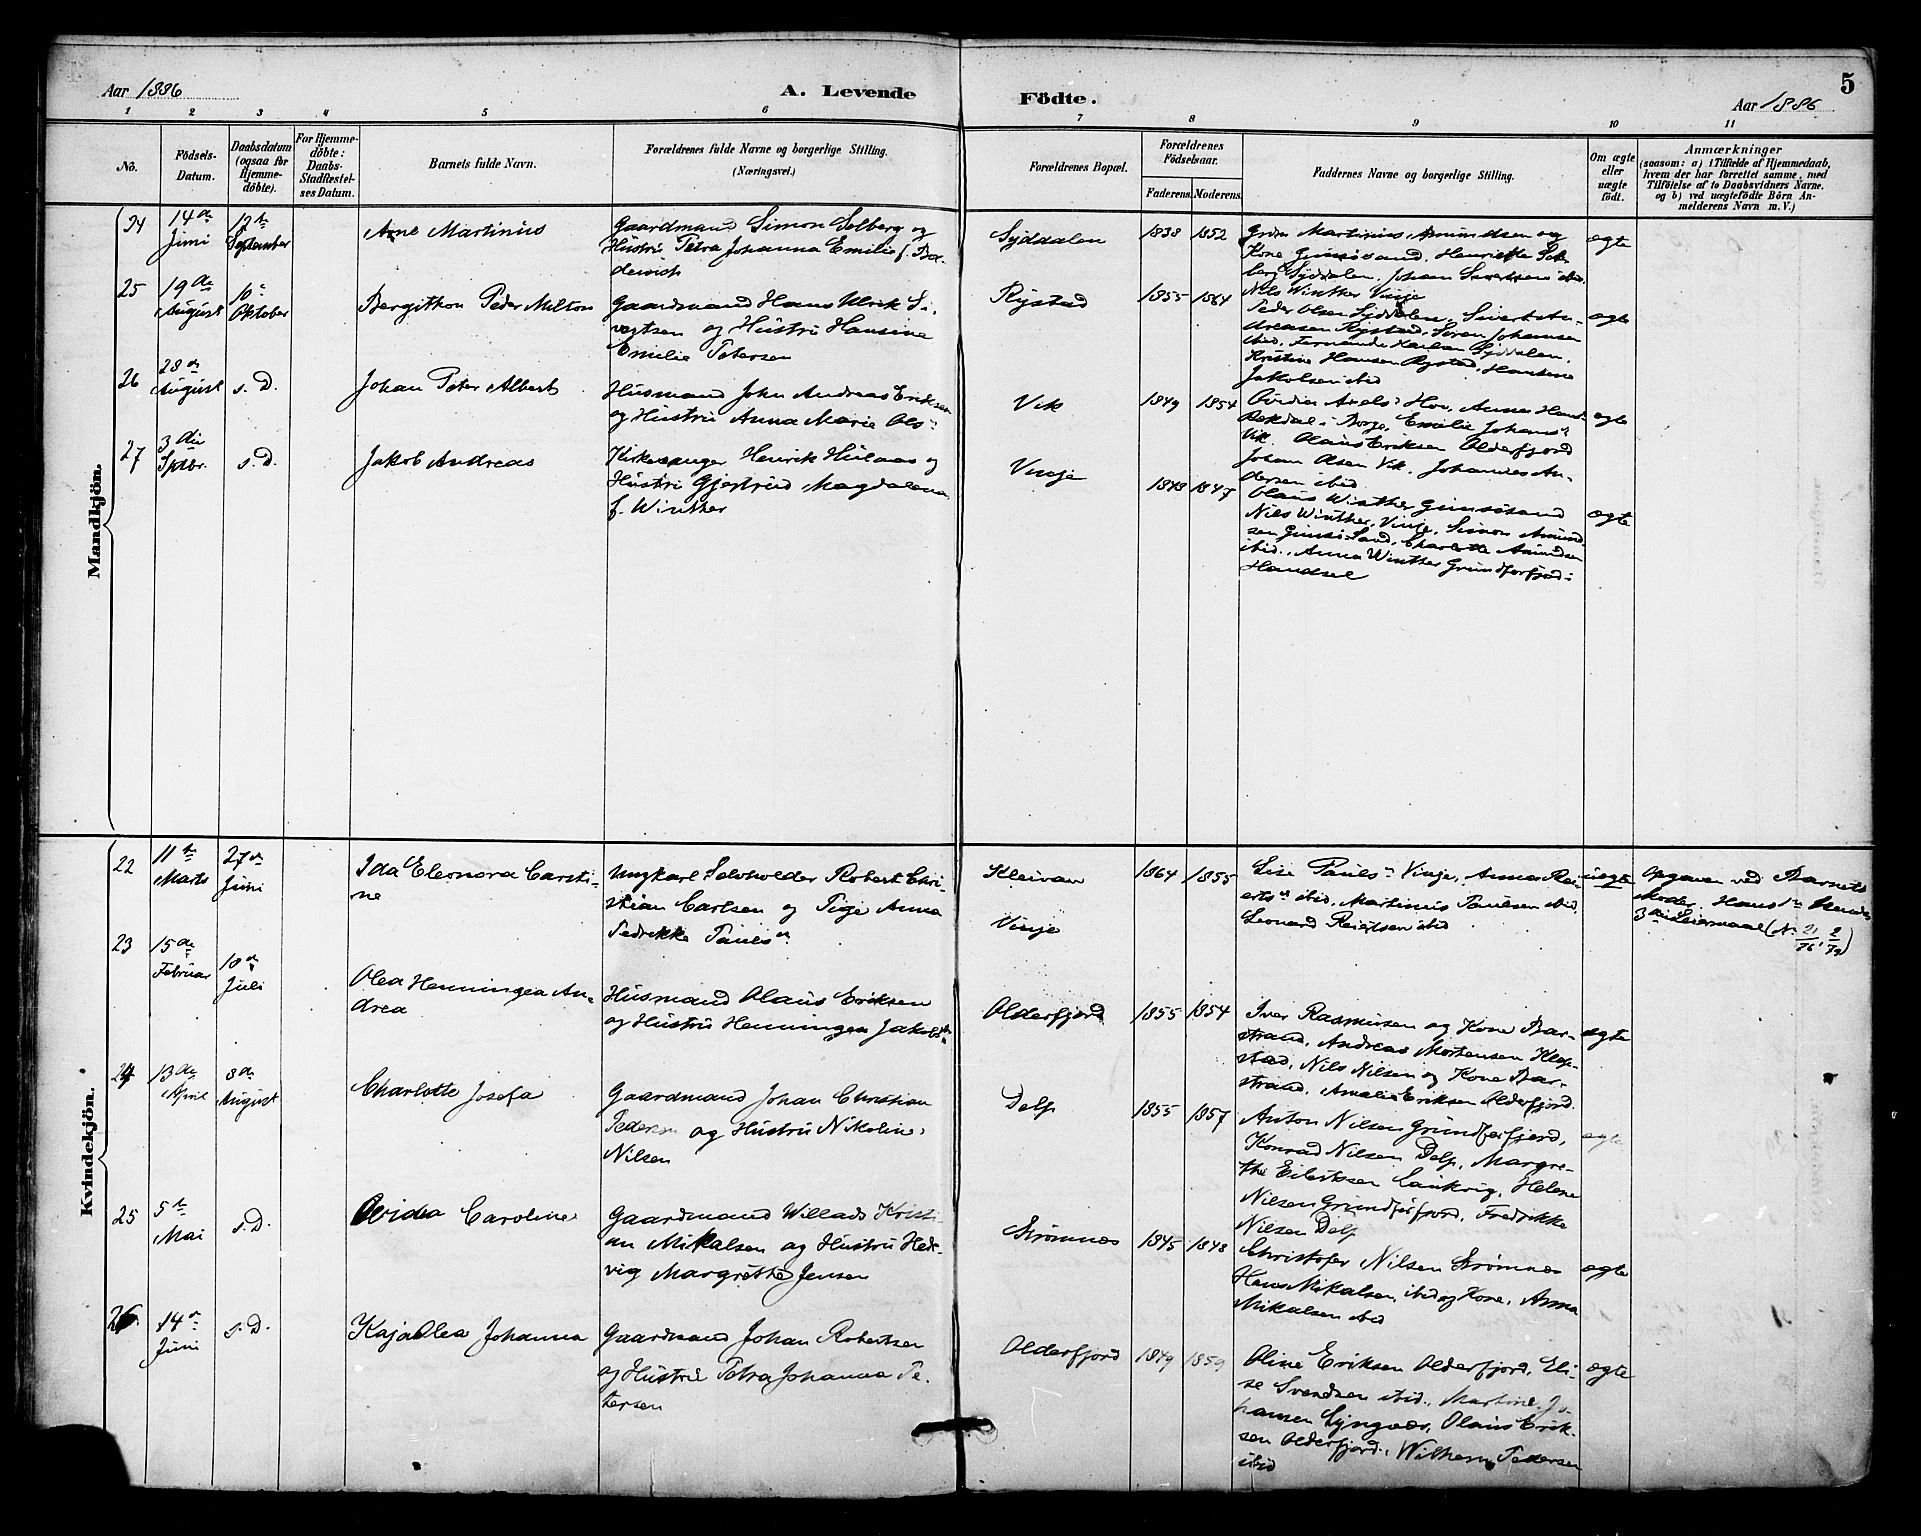 Aar 1886
A. Levende
Födte.
5
Aar 1886
1 2 3 4 5 6 7 8 9 10 11
No.
Födsels-
Datum.
Daabsdatum
(ogsaa för
Hjemme-
döbte).
For Hjemme-
döbte:
Daabs-
Stadfæstel-
ses Datum.
Barnets fulde Navn.
Forældrenes fulde Navne og borgerlige Stilling.
(Næringsvei.)
Forældrenes Bopæl.
Forældrenes
Födselsaar.
Faderens. Moderens.
Faddernes Navne og borgerlige Stilling.
Om ægte
eller
uægte
födt.
Anmærkninger
(saasom: a) i Tilfælde af Hjemmedaab,
hvem der har forrettet samme, med
Tilföielse af to Daabsvidners Navne.
og b) ved uægtefödte Börn An-
melderens Navn m. V.)
Mandkjön.
24
14de
Juni
12te
September
Arne Martinius
Gaardmand Simon Solberg og
Hustru Petra Johanna Emilie f. Bo-
dewich
Syddalen
1838 1852
Martinius Amundsen og
Kone Gimsösand, Henriette Sol-
berg Syddalen, Johan Sivertsen ibid.
Nils Winther Vinje
ægte
25
19de
August
10de
Oktober
Bergithon Peder Milton
Gaardmand Hans Ulrik Si-
vertsen og Hustru Hansine
Emilie Petersen
Rystad
1855 1864
Peder Olsen Syddalen, Sivert An-
dreasen Rystad, Sören Johansen
ibid, Syddalen,
Kristine Hansen Rystad, Hansine
Jakobsen ibid
ægte
26
28de
August
s. D.
Johan Peter Albert
Husmand John Andreas Eriksen
og Hustru Anna Marie Olsdr
Vik
1849 1854
Hov, Anna Hans
i Borge, Emilie Johansdr
Vik. Olaus Eriksen Olderfjord
Johan Olsen Vik. Johannes An-
dersen ibid
ægte
27
3die
Septbr.
s. D.
Jakob Andreas
Kirkesanger Henrik Hulaas og
Hustru Gjertrud Magdalena
f. Winther
Vinje
1848 1847
Olaus Winther Gimsösand
Nils Winther, Vinje, Simon Amund-
sen Gimsösand, Charlotte Amundsen
ibid., Anna Winther Grundforfjord i
Hadsel
ægte
Kvindekjön.
22
11te
Marts
27de
Juni
Ida Eleonora Carsti-
ne
Ungkarl Selvholder Robert Chri-
stian Carlsen og Pige Anna
Fedrikke Paulsdr
Kleivan
Vinje
1864 1855
Lise Paulsdr Vinje, Anna Rei-
ertsdr ibid, Martinus Paulsen ibid,
Leonard Reiertsen ibid
uægte
Opgaven ved Barnets
Moder. Hans 1ste Hendes
3die Leiermaal (No 21/76, 2/79)
23
15de
Februar
18de
Juli
Olea Henningea An-
drea
Husmand Olaus Eriksen
og Hustru Henningea Jakobsdr
Olderfjord
1855 1854
Iver Rasmusen og Kone Bar-
strand, Andreas Mortensen Klep-
stad, Nils Nilsen og Kone Bar-
strand, Amalie Eriksen Olderfjord.
ægte
24
13de
April
8de
August
Charlotte Josefa
Gaardmand Johan Christian
Pedersen og Hustru Nikoline
Nilsen
Delp
1855 1857
Anton Nilsen Grundforfjord,
Konrad Nilsen Delp, Margre-
the Eilertsen Laukvig, Helene
Nilsen Grundforfjord, Fredrikke
Nilsen Delp
ægte
25
5te
Mai
s. D.
Ovidia Caroline
Gaardmand Willads Kristi-
an Mikalsen og Hustru Hed-
vig Margrethe Jensen
Strømnes
1845 1848
Christofer Nilsen Strømnes
Hans Mikalsen, ibid og Kone, Anna
Mikalsen ibid
ægte
26
14de
Juni
s. D.
Kaja Olea Johanna
Gaardmand Johan Robertsen
og Hustru Petra Johanna Pe-
tersen
Olderfjord
1849 1859
Oline Eriksen Olderfjord, Eli-
se Svendsen ibid., Martine Jo-
hansen Lyngvær, Olaus Erik-
sen Olderfjord, Wilhelm Pedersen
ibid
ægte